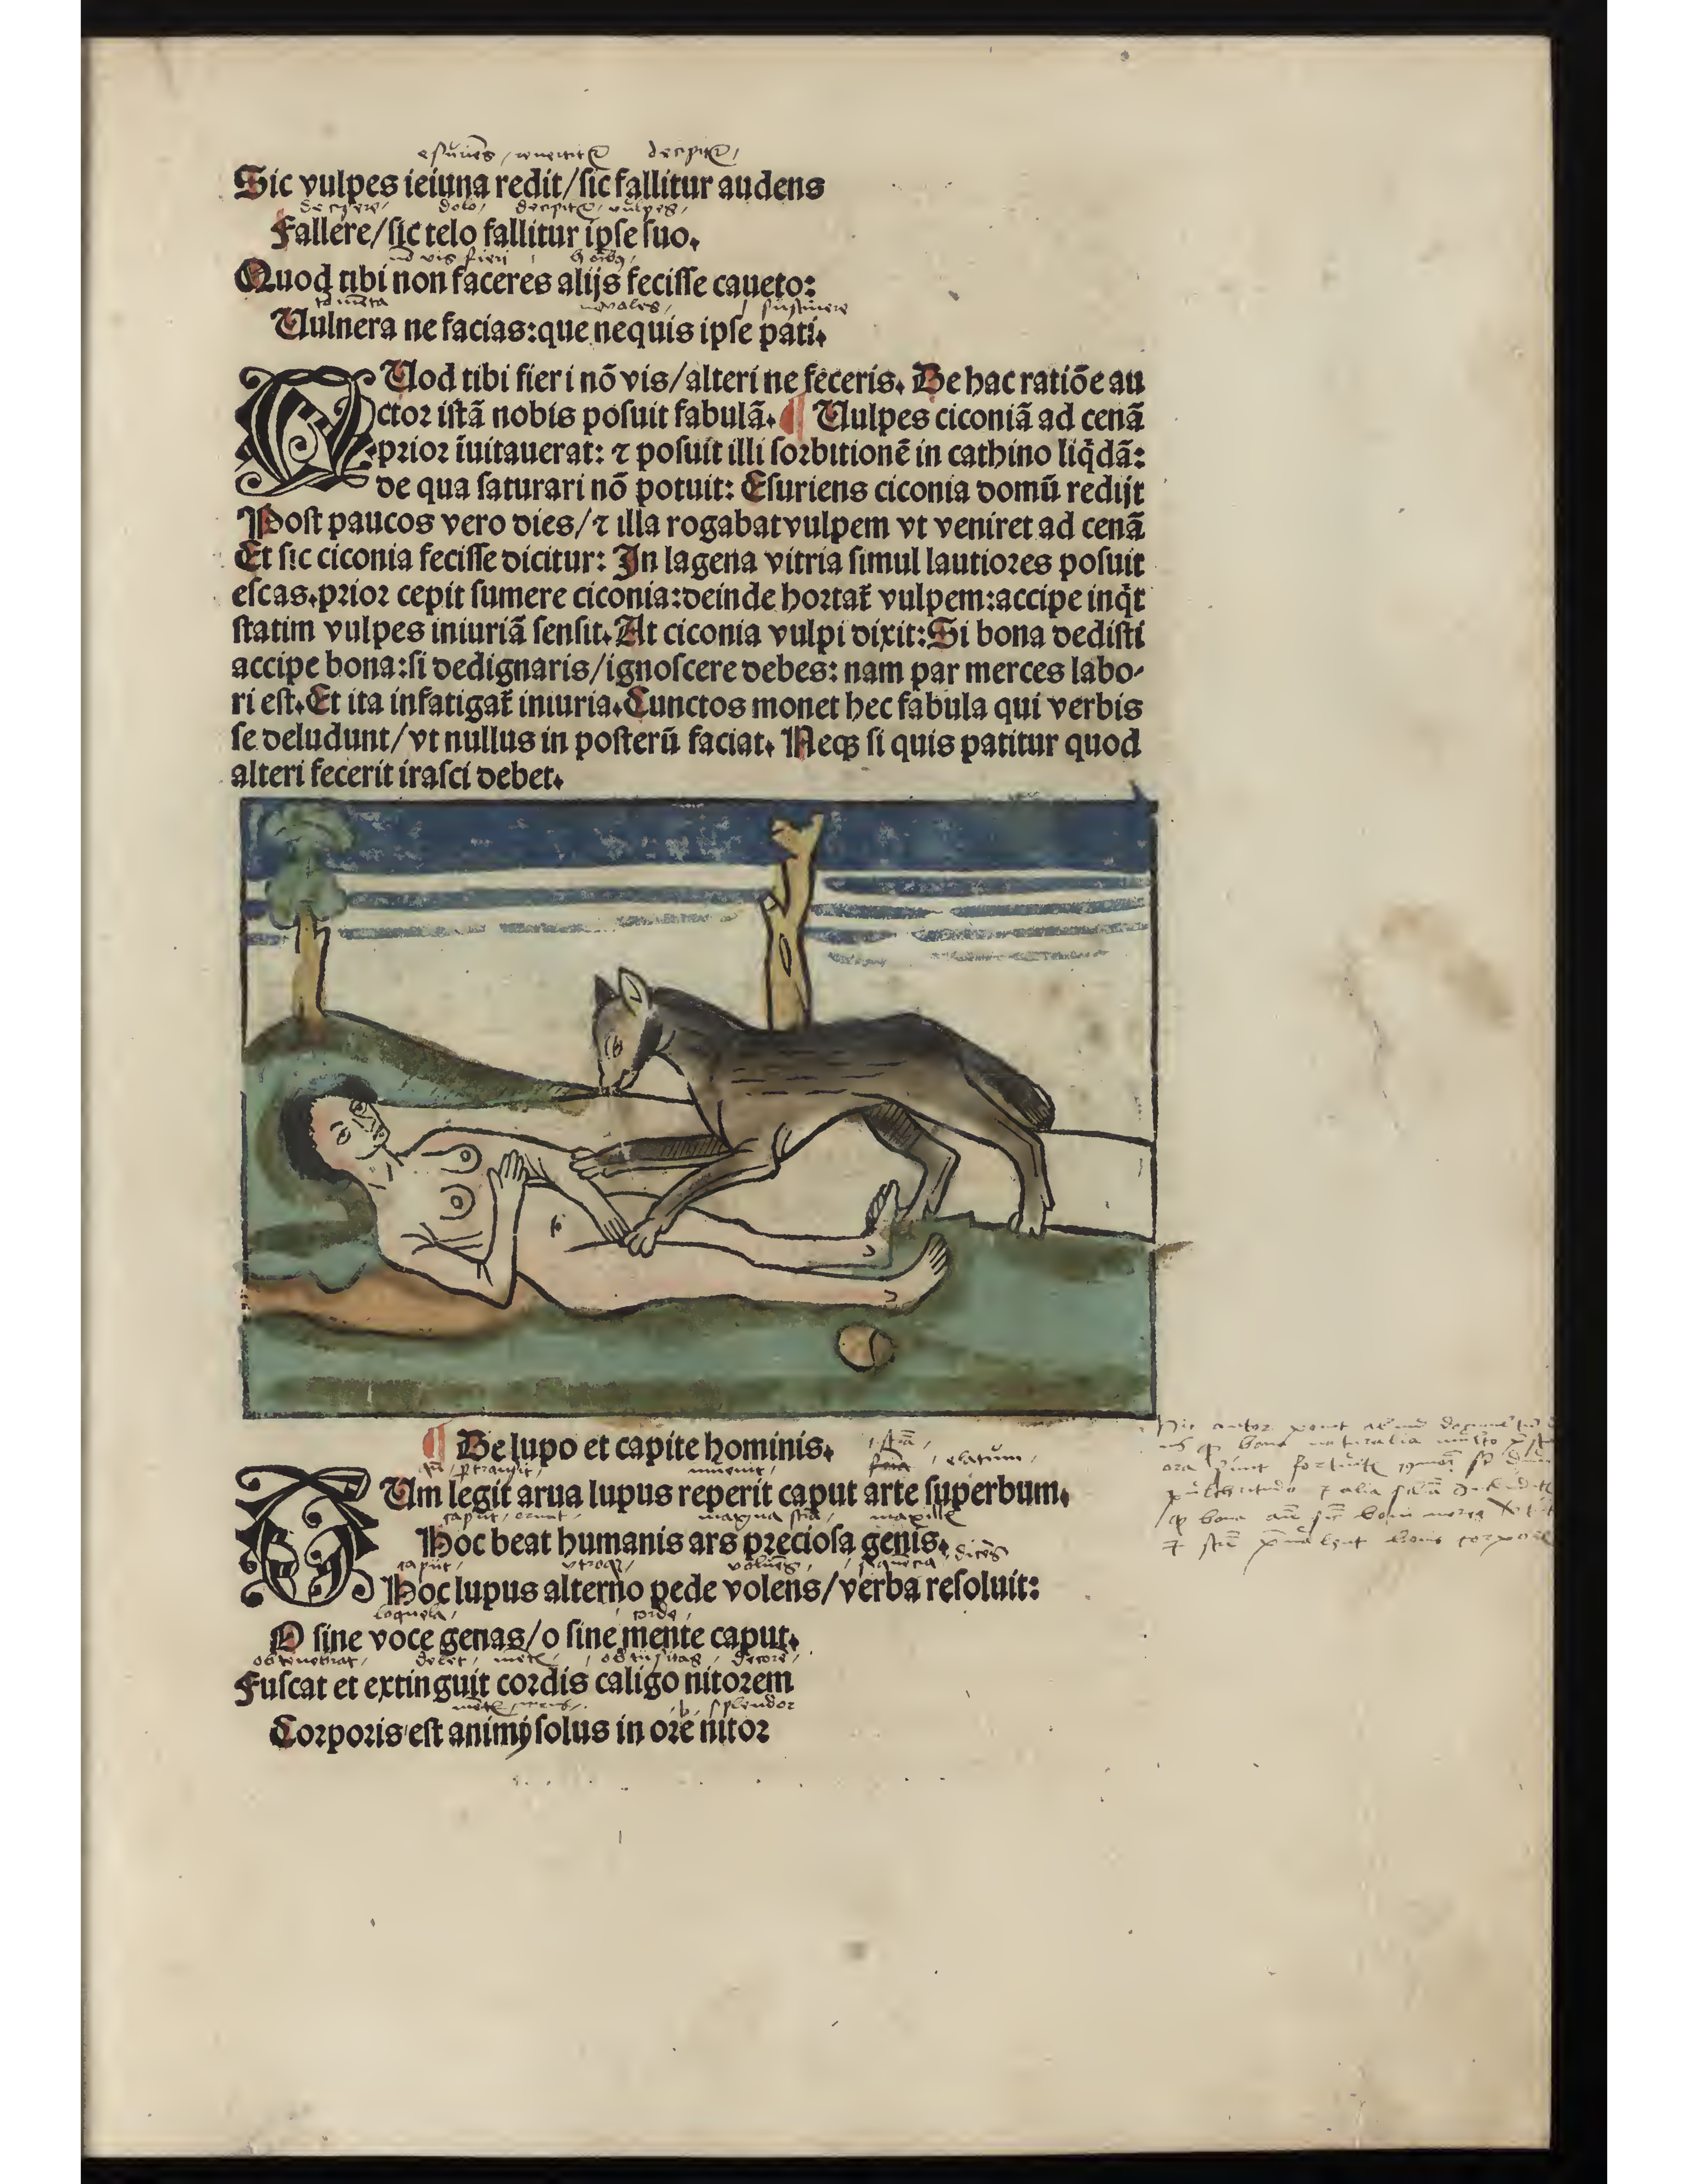 esuriēs / reuertitᷣ decipitᷣ /
Sic vulpes ieiuna redit/sic fallitur audens
decipere / dolo / decipitᷣ / vulpes /
Fallere/sic telo fallitur ipse suo.
vis fieri
Quod tibi non faceres alijs fecisse caueto:
sustinere
Uulnera ne facias:que nequis ipse pati.
QUod tibi fieri nō vis/alteri ne feceris. De hac ratiōe au
ctor istā nobis posuit fabulā. ¶ Uulpes ciconiā ad cenā
prior īuitauerat: ⁊ posuit illi sorbitionē in cathino liq̇dā:
de qua saturari nō potuit: Esuriens ciconia domū redijt
Post paucos vero dies/⁊ illa rogabat vulpem vt veniret ad cenā
Et sic ciconia fecisse dicitur: In lagena vitria simul lautiores posuit
escas.prior cepit sumere ciconia:deinde hortat᷑ vulpem:accipe inq̇t
statim vulpes iniuriā sensit.At ciconia vulpi dixit:Si bona dedisti
accipe bona:si dedignaris/ignoscere debes: nam par merces labo-
ri est.Et ita infatigat᷑ iniuria.Cunctos monet hec fabula qui verbis
se deludunt/vt nullus in posterū faciat. Neqꝫ si quis patitur quod
alteri fecerit irasci debet.
¶ De lupo et capite hominis.
elatum /
DUm legit arua lupus reperit caput arte superbum.
caput / ornat / magna maxille
Hoc beat humanis ars preciosa genis.
caput / dicēs
Hoc lupus alterno pede volens/verba resoluit:
loquela / corde /
O sine voce genas/o sine mente caput.
obtenebrat / decore /
Fuscat et extinguit cordis caligo nitorem
splendor
Corporis est animi solus in ore nitor